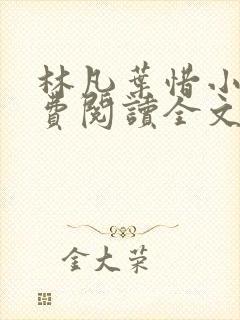 林凡葉惜小
費閱讀全文
金大荣